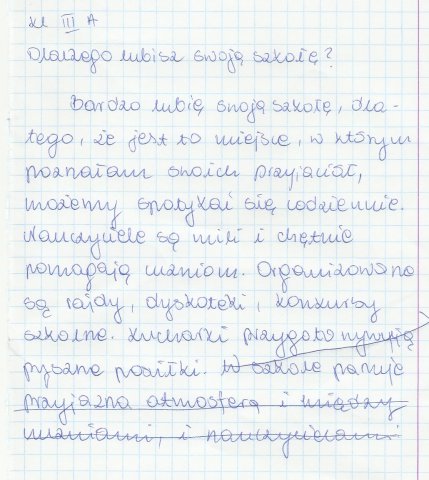 kl III A
Dlaczego lubisz swoją szkołę?
Bardzo lubię swoją szkołę, dla-
tego, że jest to miejsce, w którym
poznałam swoich przyjaciół,
możemy spotykać się codziennie.
Nauczyciele są mili i chętnie
pomagają uczniom. Organizowane
są rajdy, dyskoteki, konkursy
szkolne. Kucharki przygotowywują
pyszne posiłki. W szkole panuje
przyjazna atmosfera i między
uczniami, i nauczycielami